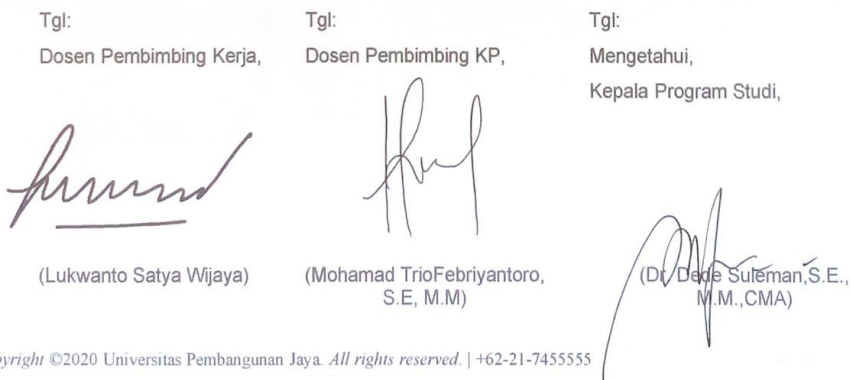 Tgl:
Dosen Pembimbing Kerja,
(Lukwanto Satya Wijaya)
Tgl:
Dosen Pembimbing KP,
(Mohamad TrioFebriyantoro,
S.E, M.M)
Tgl:
Mengetahui,
Kepala Program Studi,
(Dr. Dede Suleman,S.E.,
M.M.,CMA)
pyright ©2020 Universitas Pembangunan Jaya. All rights reserved. | +62-21-7455555